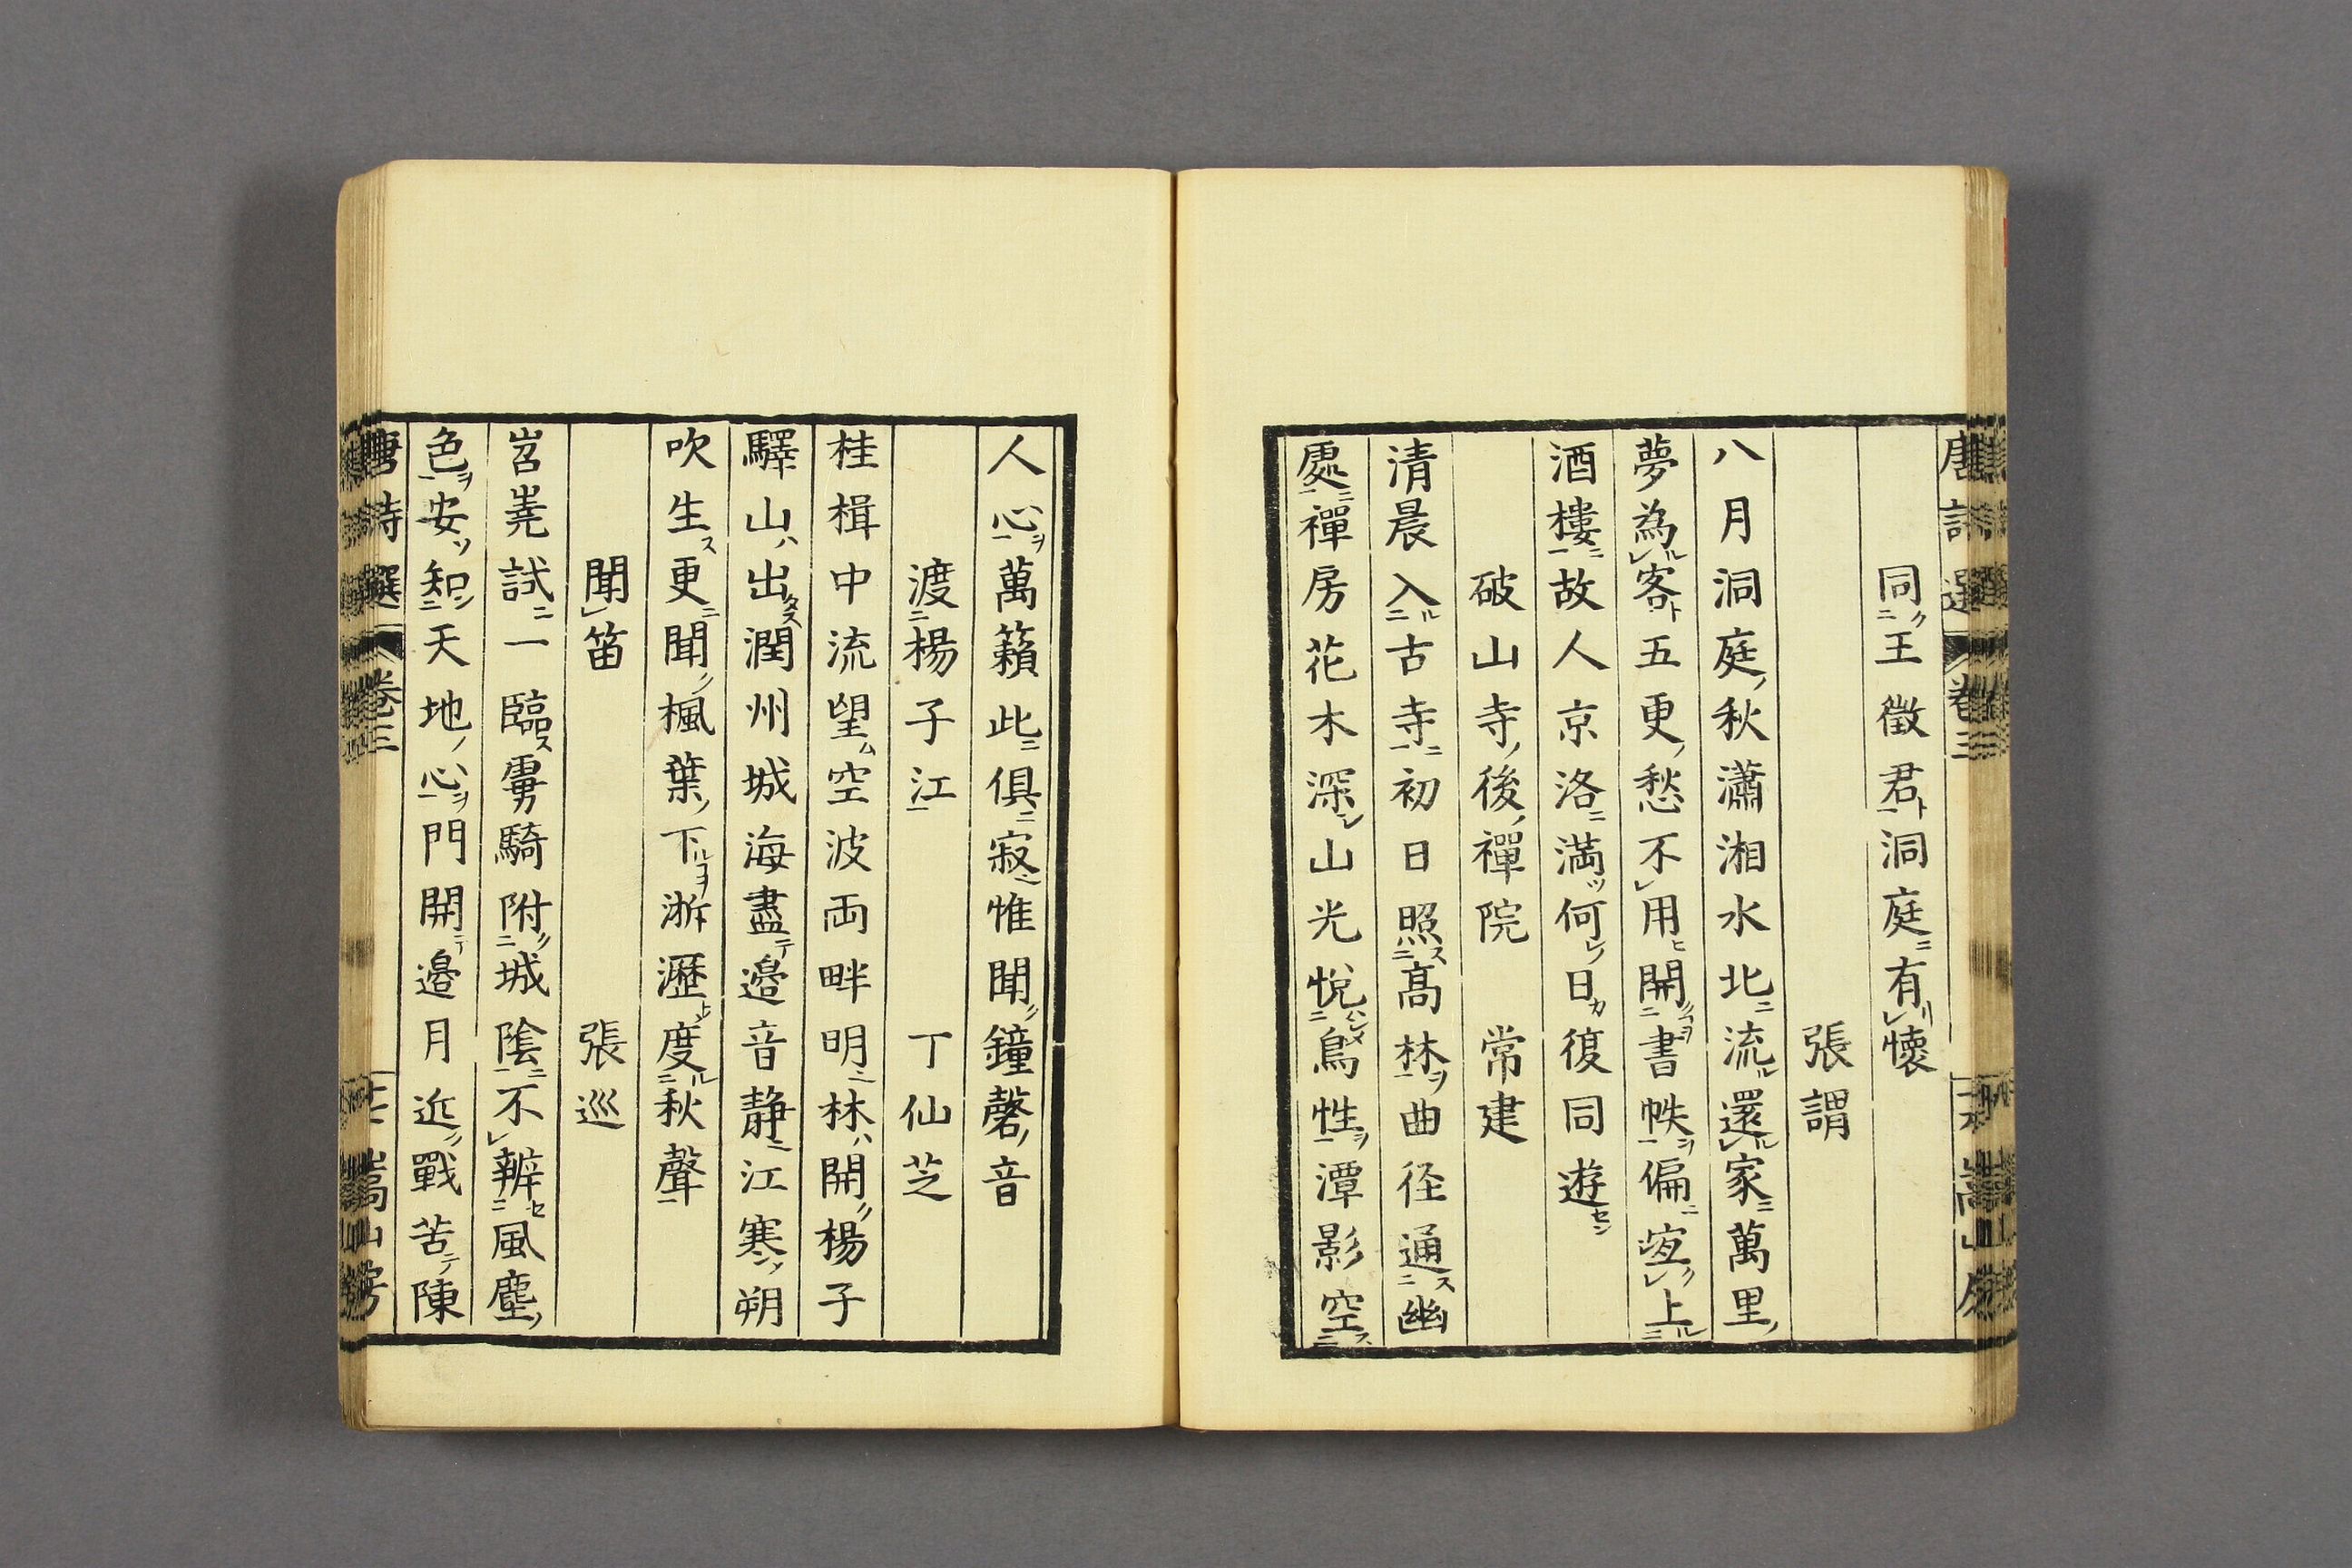 唐詩選 卷三 嵩山房
同王徵君洞庭有懷
張謂
八月洞庭秋瀟湘水北流還家萬里
夢為客五更愁不用開書帙偏宐上
酒樓故人京洛滿何日復同遊
破山寺後禪院 常建
清晨入古寺初日照高林曲径通幽
處禪房花木深山光悅鳥性潭影空
人心萬籟此俱寂惟聞鐘磬音
渡楊子江 丁仙芝
桂楫中流望空波両畔明林開楊子
驛山出潤州城海盡邉音静江寒朔
吹生更聞楓葉下淅瀝度秋聲
聞笛 張巡
岧嶤試一臨虜騎附城陰不辨風塵
色安知天地心門開邉月近戰苦陳
唐詩選 卷三 嵩山房